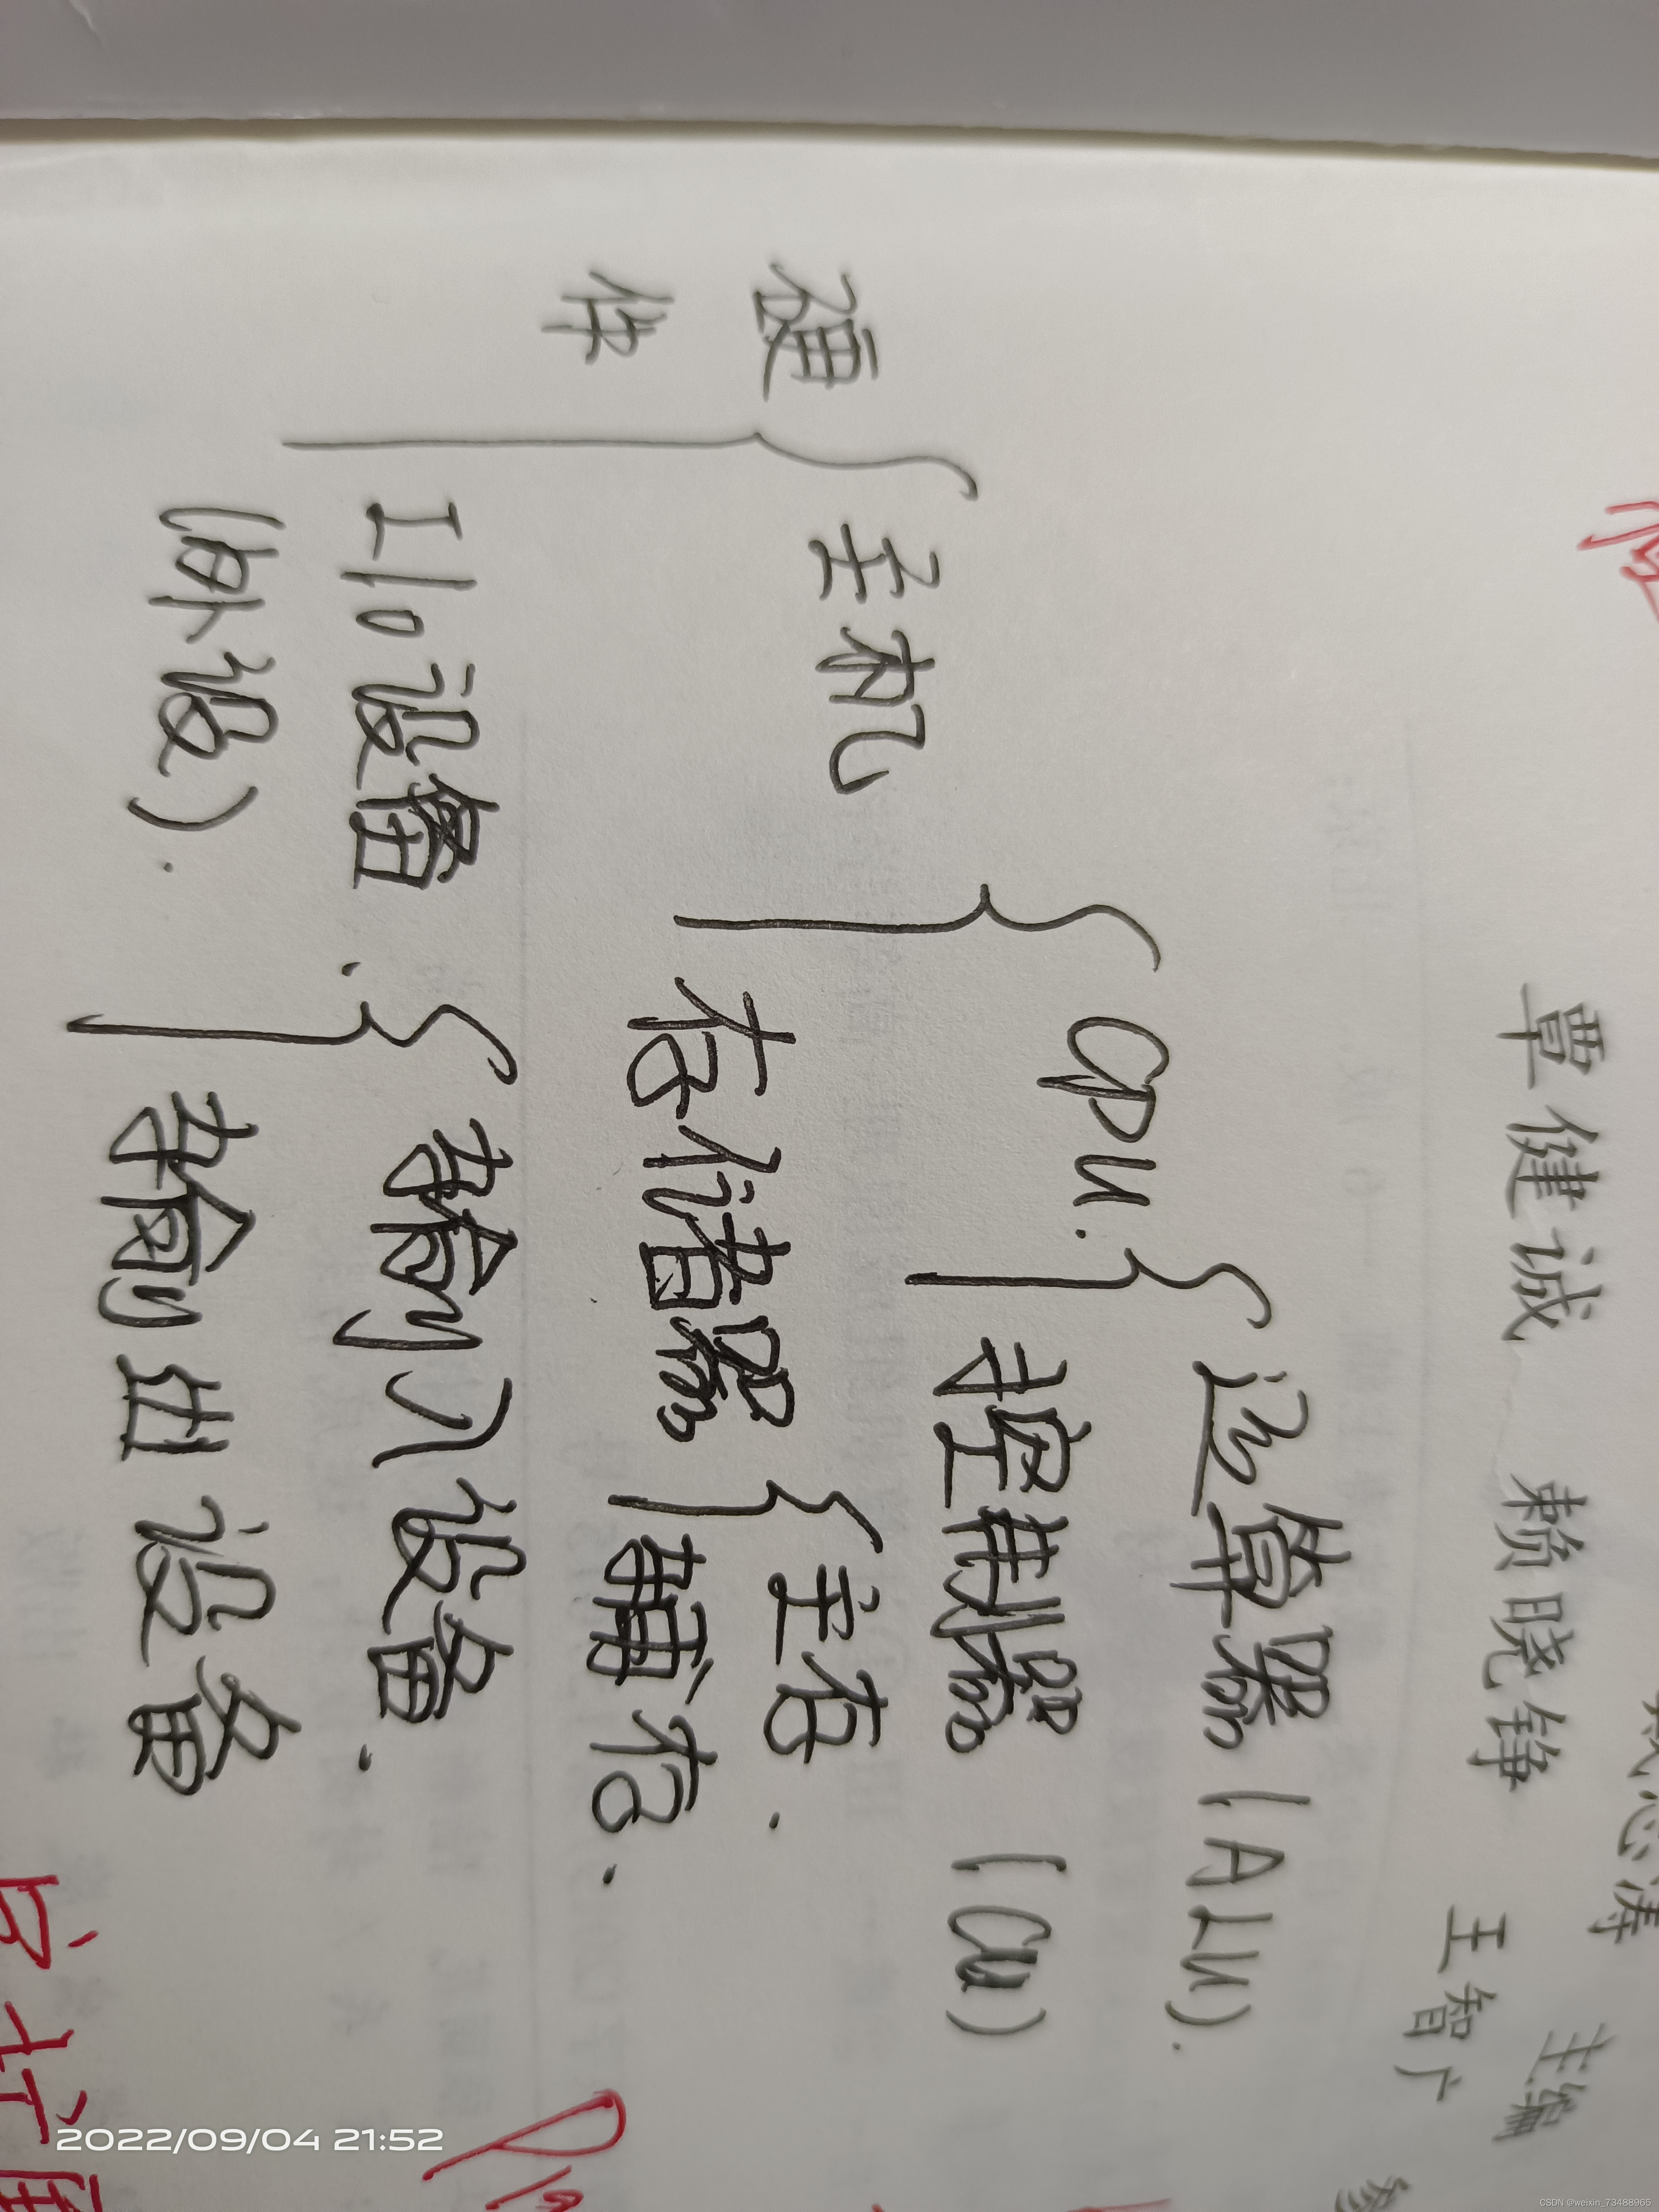 覃健诚 赖晓铮 王智广
主编
运算器(ALU).
CPU.
控制器 (CU)
主机
主存.
存储器
硬件
辅存.
I/O设备.
输入设备.
(外设).
输出设备
2022/09/04 21:52
CSDN @weixin_73488965